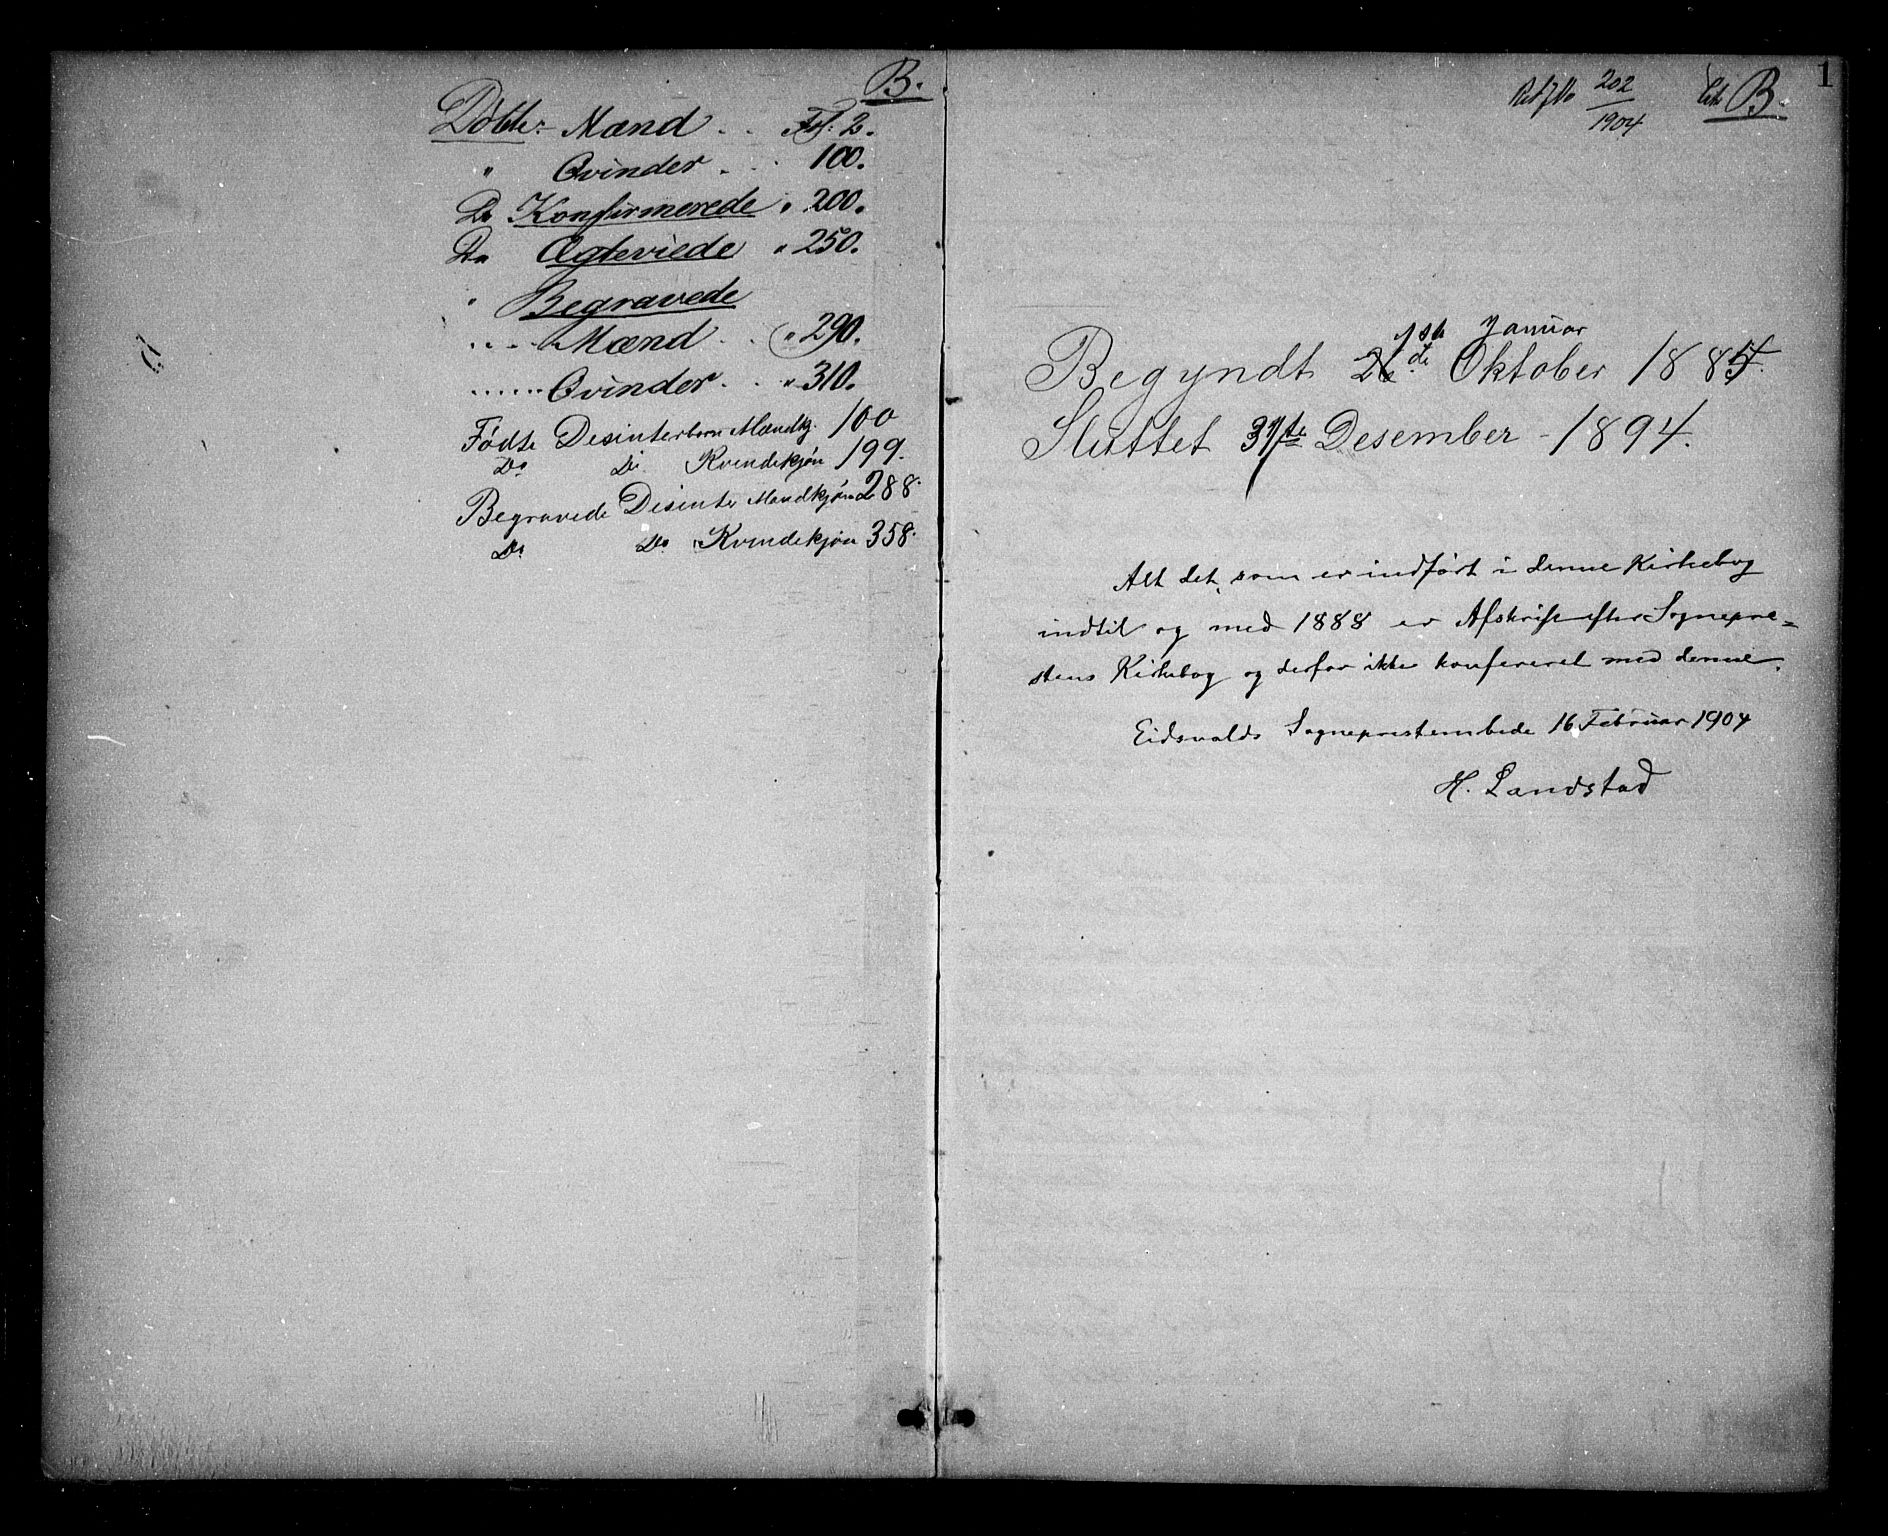 B.
Døbte:- Mænd . . Fol: 2.
" Qvinder . . 100.
Do Konfirmerede " 200.
Do Ægteviede " 250.
" Begravede
.... Mænd . . " 290.
...... Qvinder . . " 310.
Fødte Desinterbørn Mandkj. 100
Do Do Kvindekjøn 199.
Begravede Disinter Mandkjøn 288.
Do Do Kvindekjøn 358.
202/1904 B.
1
1ste Januar
Begyndt de Oktober 1885.
Sluttet 31te Desember - 1894.
Alt det, som er indført i denne Kirkebog
indtil og med 1888 er Afskrift efter Sognepre=
stens Kirkebog og derfor ikke konfereret med denne.
Eidsvolds Sogneprestembede 16 Februar 1904
H. Landstad